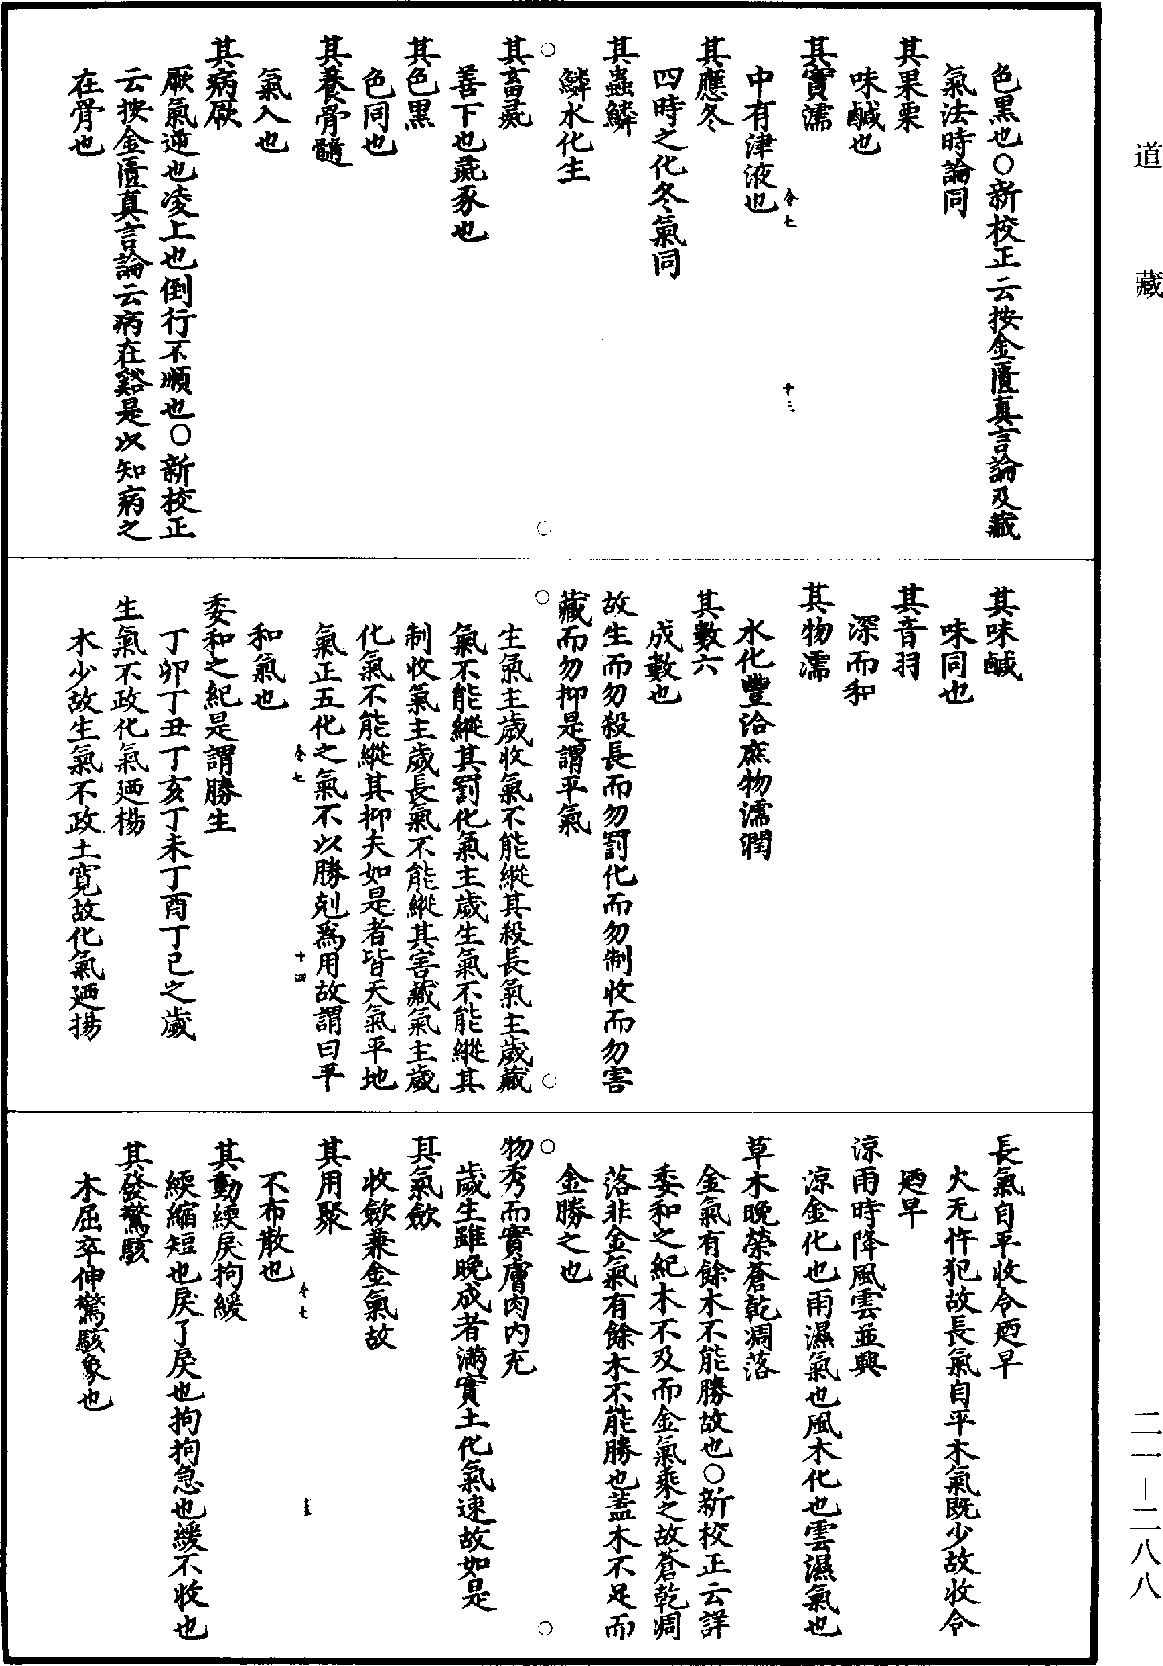 道藏
色黑也○新校正云按金匱真言論及藏
氣法時論同
其果栗
味鹹也
其實濡
中有津液也
令七
十三
其應冬
四時之化冬氣同
其蟲鱗
鱗水化生
其畜彘
善下也彘豕也
其色黑
色同也
其養骨髓
氣入也
其病厥
厥氣逆也凌上也倒行不順也○新校正
云按金匱真言論云病在谿是以知病之
在骨也
其味鹹
味同也
其音羽
深而和
其物濡
水化豐洽庶物濡潤
其數六
成數也
故生而勿殺長而勿罰化而勿制收而勿害
藏而勿抑是謂平氣
生氣主歲收氣不能縱其殺長氣主歲藏
氣不能縱其罰化氣主歲生氣不能縱其
制收氣主歲長氣不能縱其害藏氣主歲
化氣不能縱其抑夫如是者皆天氣平地
氣正五化之氣不以勝剋為用故謂曰平
令七
十四
和氣也
委和之紀是謂勝生
丁卯丁丑丁亥丁未丁酉丁巳之歲
生氣不政化氣廼揚
木少故生氣不政土寬故化氣廼揚
長氣自平收令廼早
火无忤犯故長氣自平木氣既少故收令
廼早
涼雨時降風雲並興
涼金化也雨濕氣也風木化也雲濕氣也
草木晚榮蒼乾凋落
金氣有餘木不能勝故也○新校正云詳
委和之紀木不及而金氣乘之故蒼乾凋
落非金氣有餘木不能勝也蓋木不足而
金勝之也
物秀而實膚肉內充
歲生雖晚成者滿實土化氣速故如是
其氣斂
收斂兼金氣故
其用聚
不布散也
令七
其動緛戾拘緩
緛縮短也戾了戾也拘拘急也緩不收也
其發驚駭
木屈卒伸驚駭象也
二一—二八八